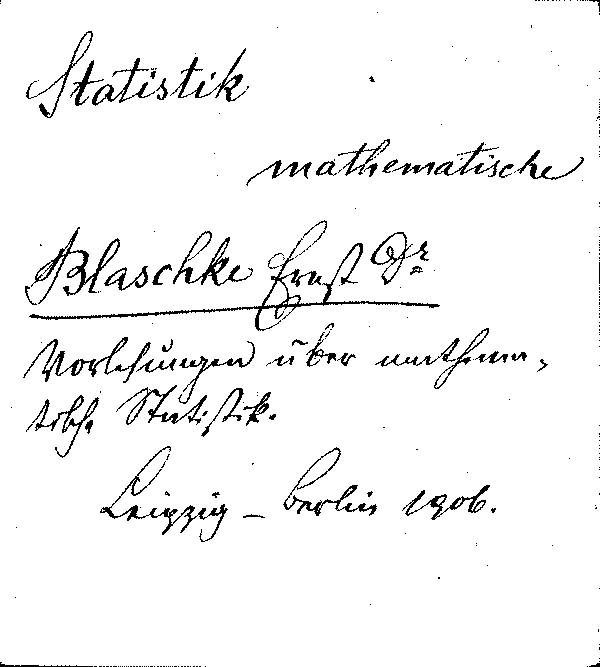 Statistik
mathematische
Blaschke Ernst Dr
Vorlesungen über mathema-
tische Statistik.
Leipzig – Berlin 1906.